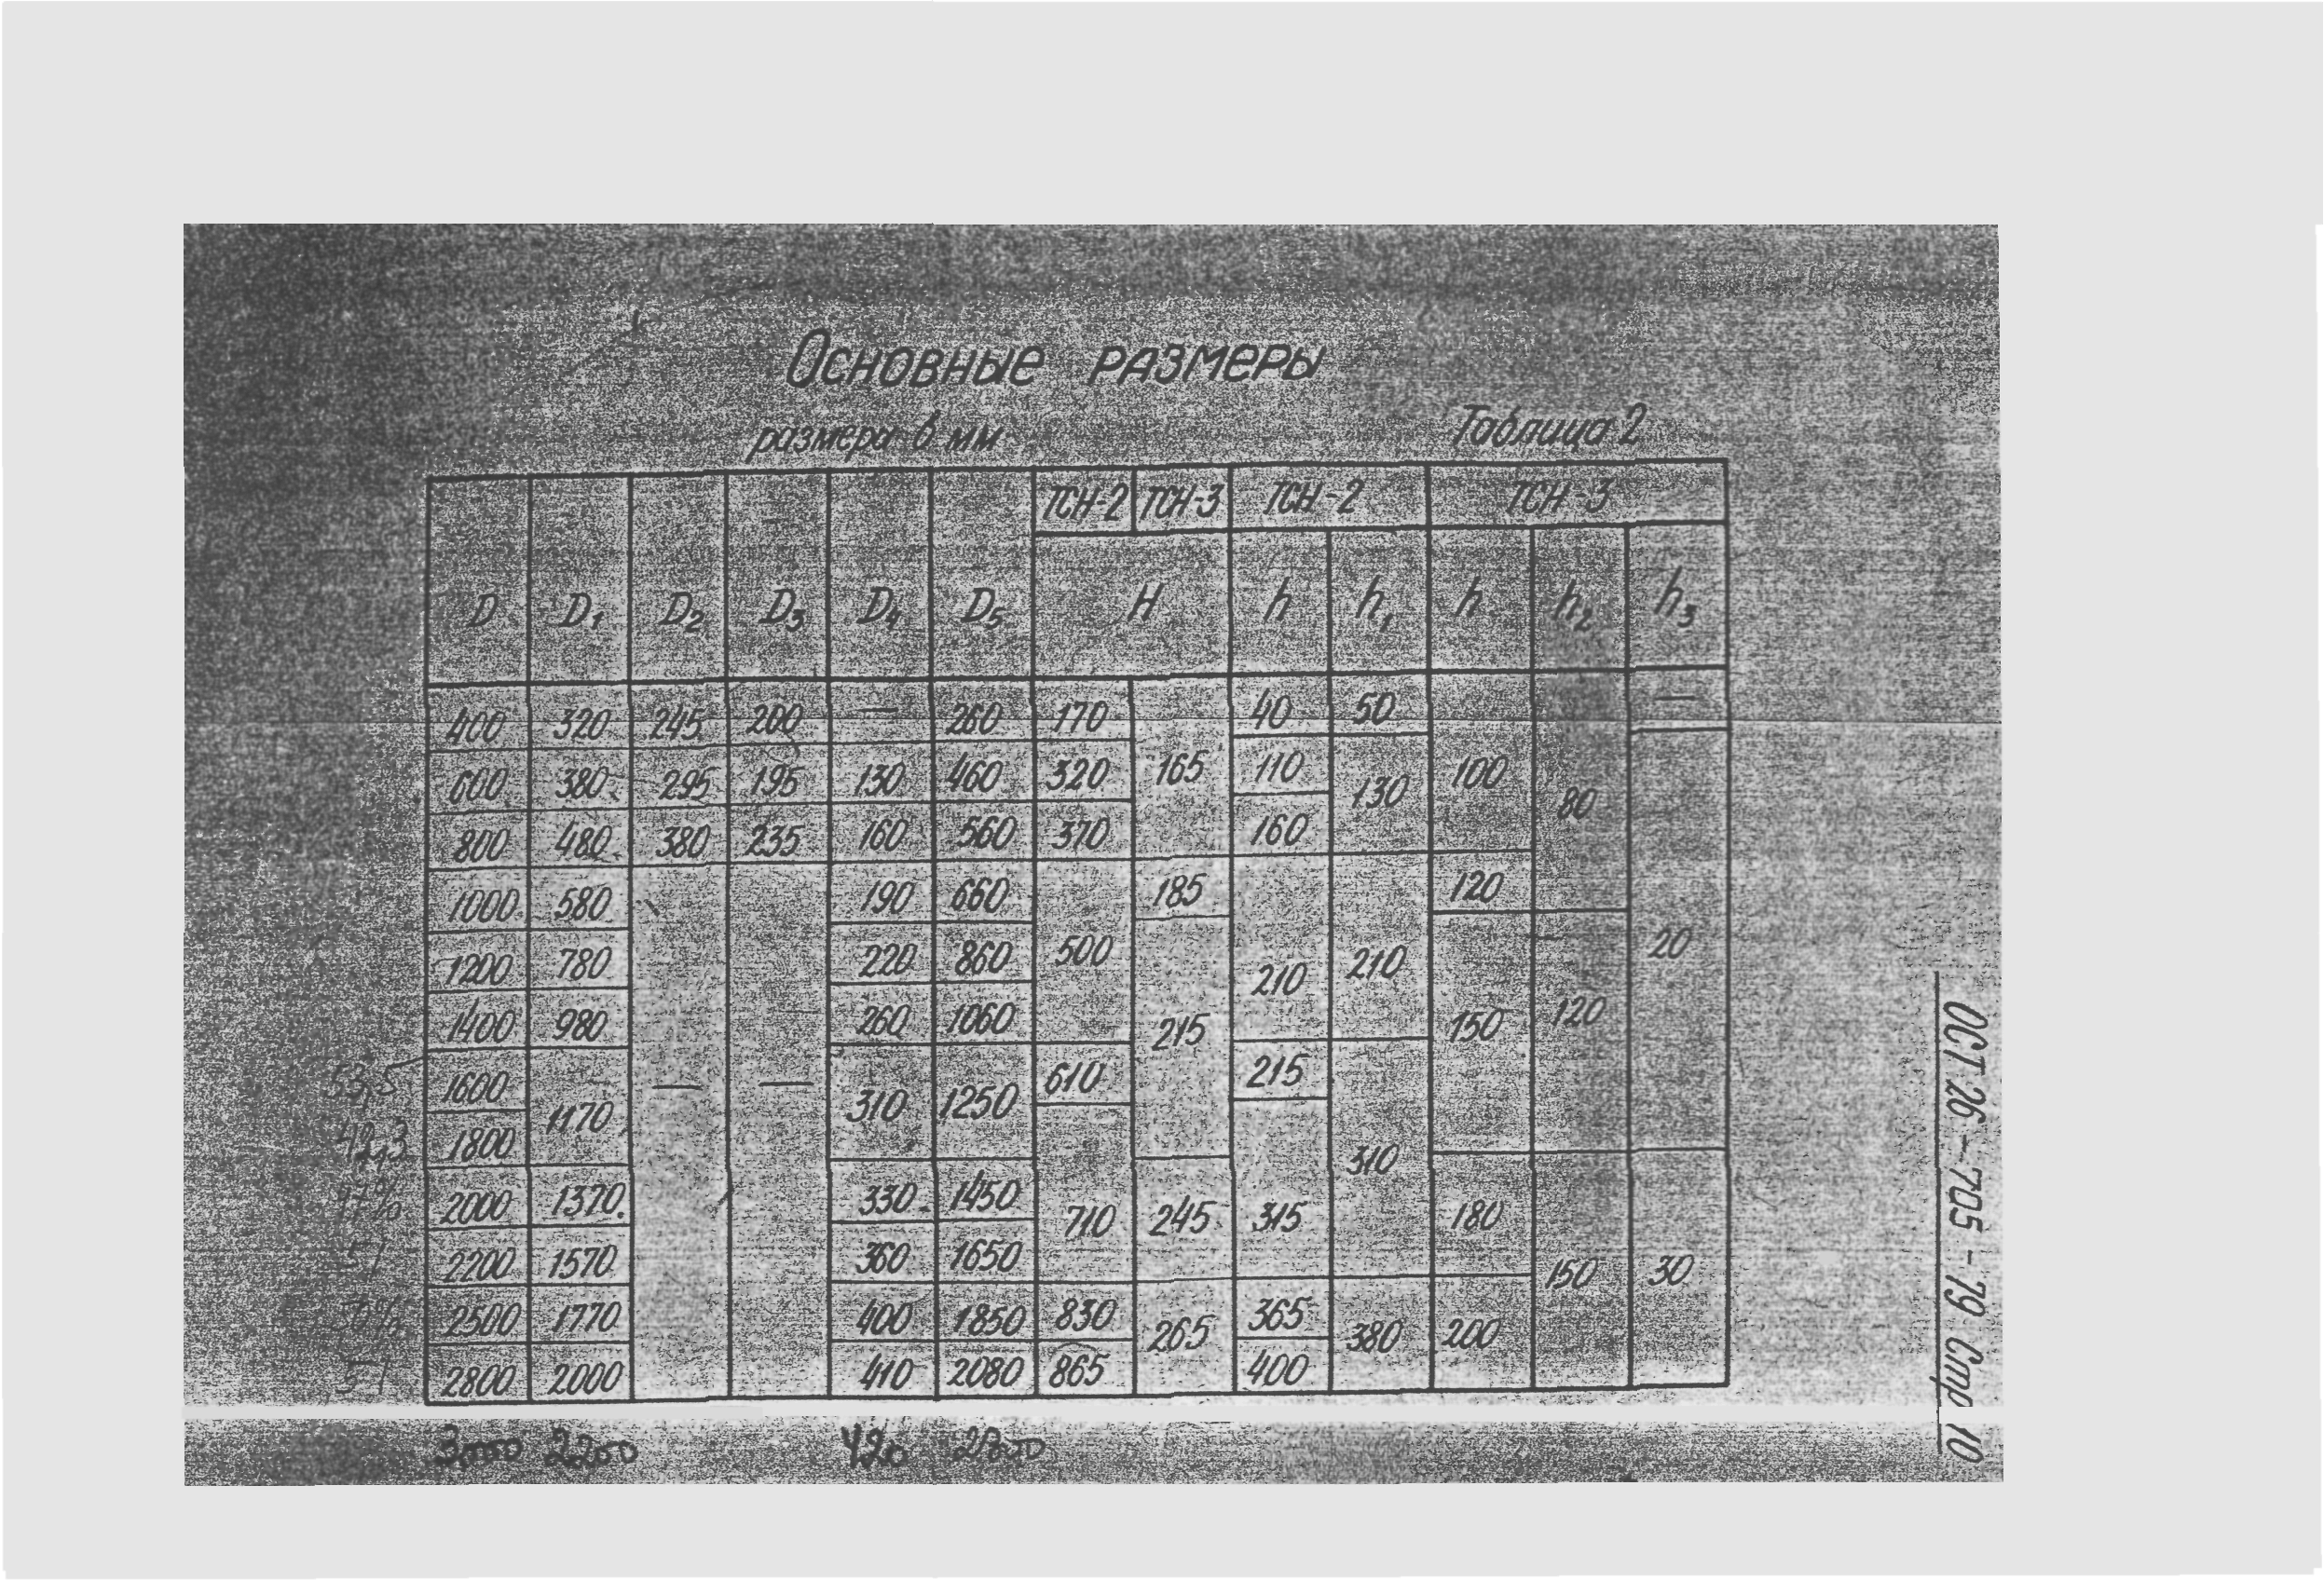 Основные размеры
размера в мм Таблица 2
ТСН-2 ТСН-3 ТСН-2 ТСН-3
D D1 D2 D3 D4 D5 H h h1 h h2 h3
400 320 245 200 — 260 170 165 40 50 100 80 —
600 380 295 195 130 460 320 110 130 20
800 480 380 235 160 560 370 160
1000 580 — — 190 660 500 185 210 210 120
1200 780 220 860 215 150 120
1400 980 260 1060
53,5 1600 1170 310 1250 610 215 310
42,3 1800 710 315
47% 2000 1370 330 1450 245 180 150 30
51 2200 1570 360 1650
2500 1770 400 1850 830 265 365 380 200
51 2800 2000 410 2080 865 400
3000 2200 420
ОСТ 26-705-79 Стр 10